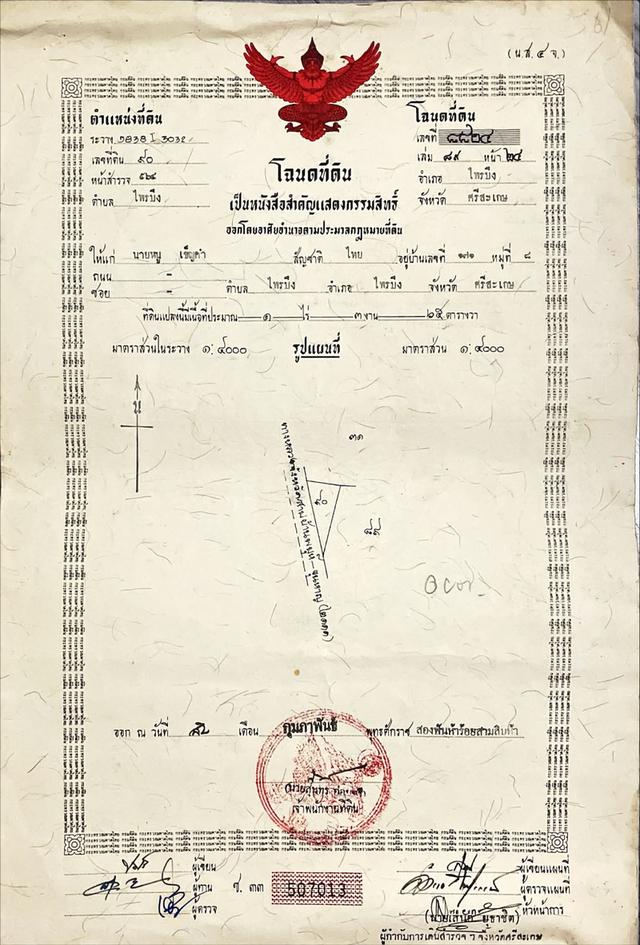 (น.ส.๔ จ.)
ตำแหน่งที่ดิน
ระวาง 5838 I 3032
เลขที่ดิน ๙๐
หน้าสำรวจ ๕๖๔
ตำบล ไพรบึง
โฉนดที่ดิน
เลขที่ ๘๘๒๔
เล่ม ๘๙ หน้า ๒๔
อำเภอ ไพรบึง
จังหวัด ศรีสะเกษ
โฉนดที่ดิน
เป็นหนังสือสำคัญแสดงกรรมสิทธิ์
ออกโดยอาศัยอำนาจตามประมวลกฎหมายที่ดิน
ให้แก่ นายหนู เข็ญคำ สัญชาติ ไทย อยู่บ้านเลขที่ ๑๗๑ หมู่ที่ ๘
ถนน -
ซอย - ตำบล ไพรบึง อำเภอ ไพรบึง จังหวัด ศรีสะเกษ
ที่ดินแปลงนี้มีเนื้อที่ประมาณ ๑ ไร่ ๓ งาน ๒๕ ตารางวา
มาตราส่วนในระวาง ๑:๔๐๐๐ รูปแผนที่ มาตราส่วน ๑:๔๐๐๐
น
๓๑
๙๐
๘๙
ออก ณ วันที่ สิบ เดือน กุมภาพันธ์ พุทธศักราช สองพันห้าร้อยสามสิบเก้า
เจ้าพนักงานที่ดิน
ผู้เขียน
ผู้ทาน
ผู้ตรวจ
ช.๓๓ 507013
ผู้เขียนแผนที่
ผู้ตรวจแผนที่
หัวหน้าการ
ผู้กำกับการเดินสำรวจ ฯ จังหวัดศรีสะเกษ